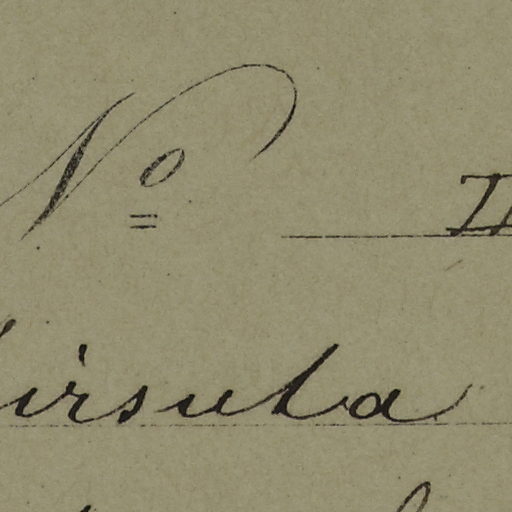 Nº
hirsuta